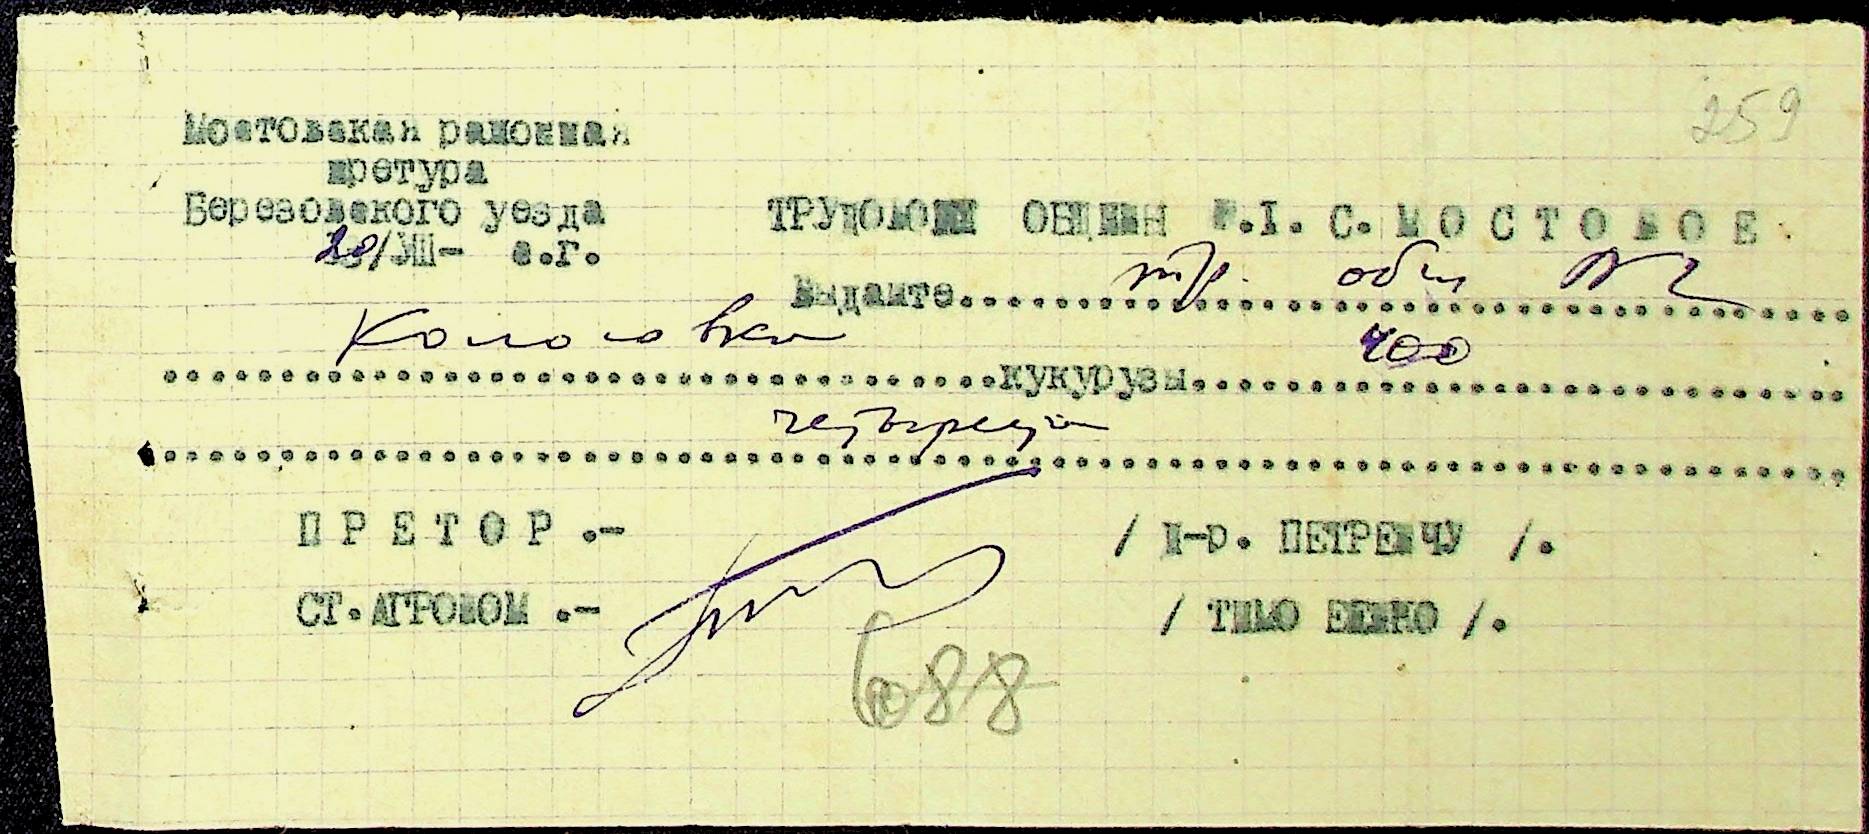 259
Мостовская районная
претура
Березовского уезда
20/VIII- с.г.
ТРУДОВОЙ ОБЩИНЫ №.I. С. МОСТОВОЕ.
Выдайте.......... тр. общ №2
Колосовка ..........кукурузы.......... 400
четыреста
ПРЕТОР.- / И-р. ПЕТРЕНЧУ /.
СТ.АГРОНОМ.- / ТИМО ЕЕНКО /.
6088